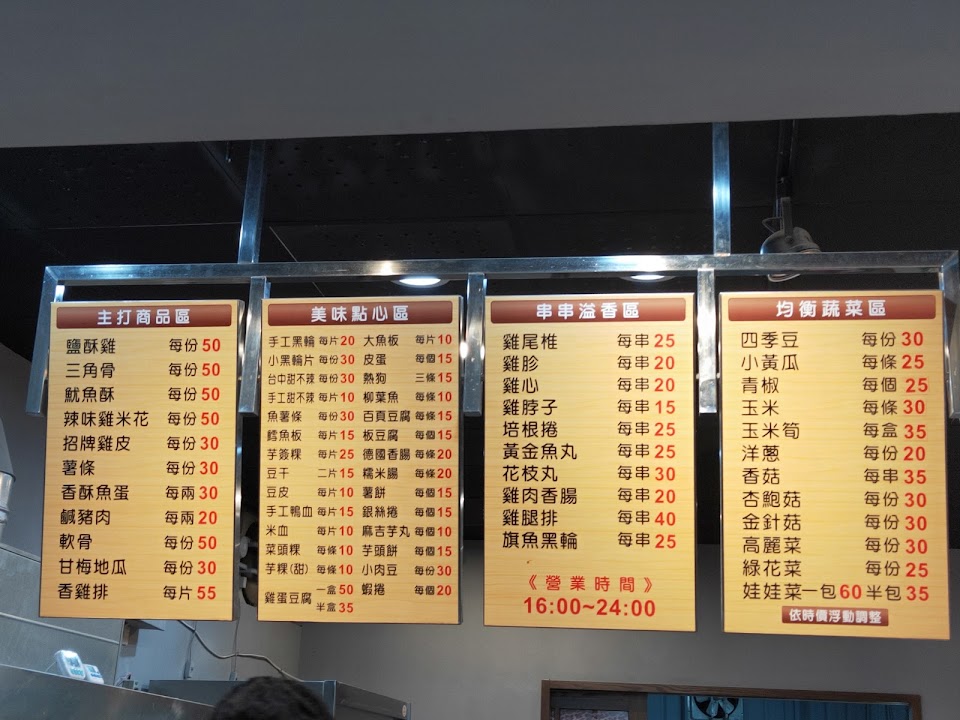 主打商品區
鹽酥雞 每份50
三角骨 每份50
魷魚酥 每份50
辣味雞米花 每份50
招牌雞皮 每份30
薯條 每份30
香酥魚蛋 每兩30
鹹豬肉 每兩20
軟骨 每份50
甘梅地瓜 每份30
香雞排 每片55
美味點心區
手工黑輪 每片20 大魚板 每片10
小黑輪片 每份30 皮蛋 每個15
台中甜不辣 每份30 熱狗 三條15
手工甜不辣 每片10 柳葉魚 每條10
魚薯條 每份30 百頁豆腐 每條15
鱈魚板 每片15 板豆腐 每個15
芋簽粿 每片25 德國香腸 每條20
豆干 二片15 糯米腸 每條20
豆皮 每片10 薯餅 每個15
手工鴨血 每片15 銀絲捲 每個15
米血 每片10 麻吉芋丸 每個10
菜頭粿 每條10 芋頭餅 每個15
芋粿(甜) 每條10 小肉豆 每份30
雞蛋豆腐 一盒50 半盒35 蝦捲 每個20
串串溢香區
雞尾椎 每串25
雞胗 每串20
雞心 每串20
雞脖子 每串15
培根捲 每串25
黃金魚丸 每串25
花枝丸 每串30
雞肉香腸 每串20
雞腿排 每串40
旗魚黑輪 每串25
《營業時間》
16:00~24:00
均衡蔬菜區
四季豆 每份30
小黃瓜 每條25
青椒 每個25
玉米 每條30
玉米筍 每盒35
洋蔥 每份20
香菇 每串35
杏鮑菇 每份30
金針菇 每份30
高麗菜 每份30
綠花菜 每份25
娃娃菜一包60半包35
依時價浮動調整